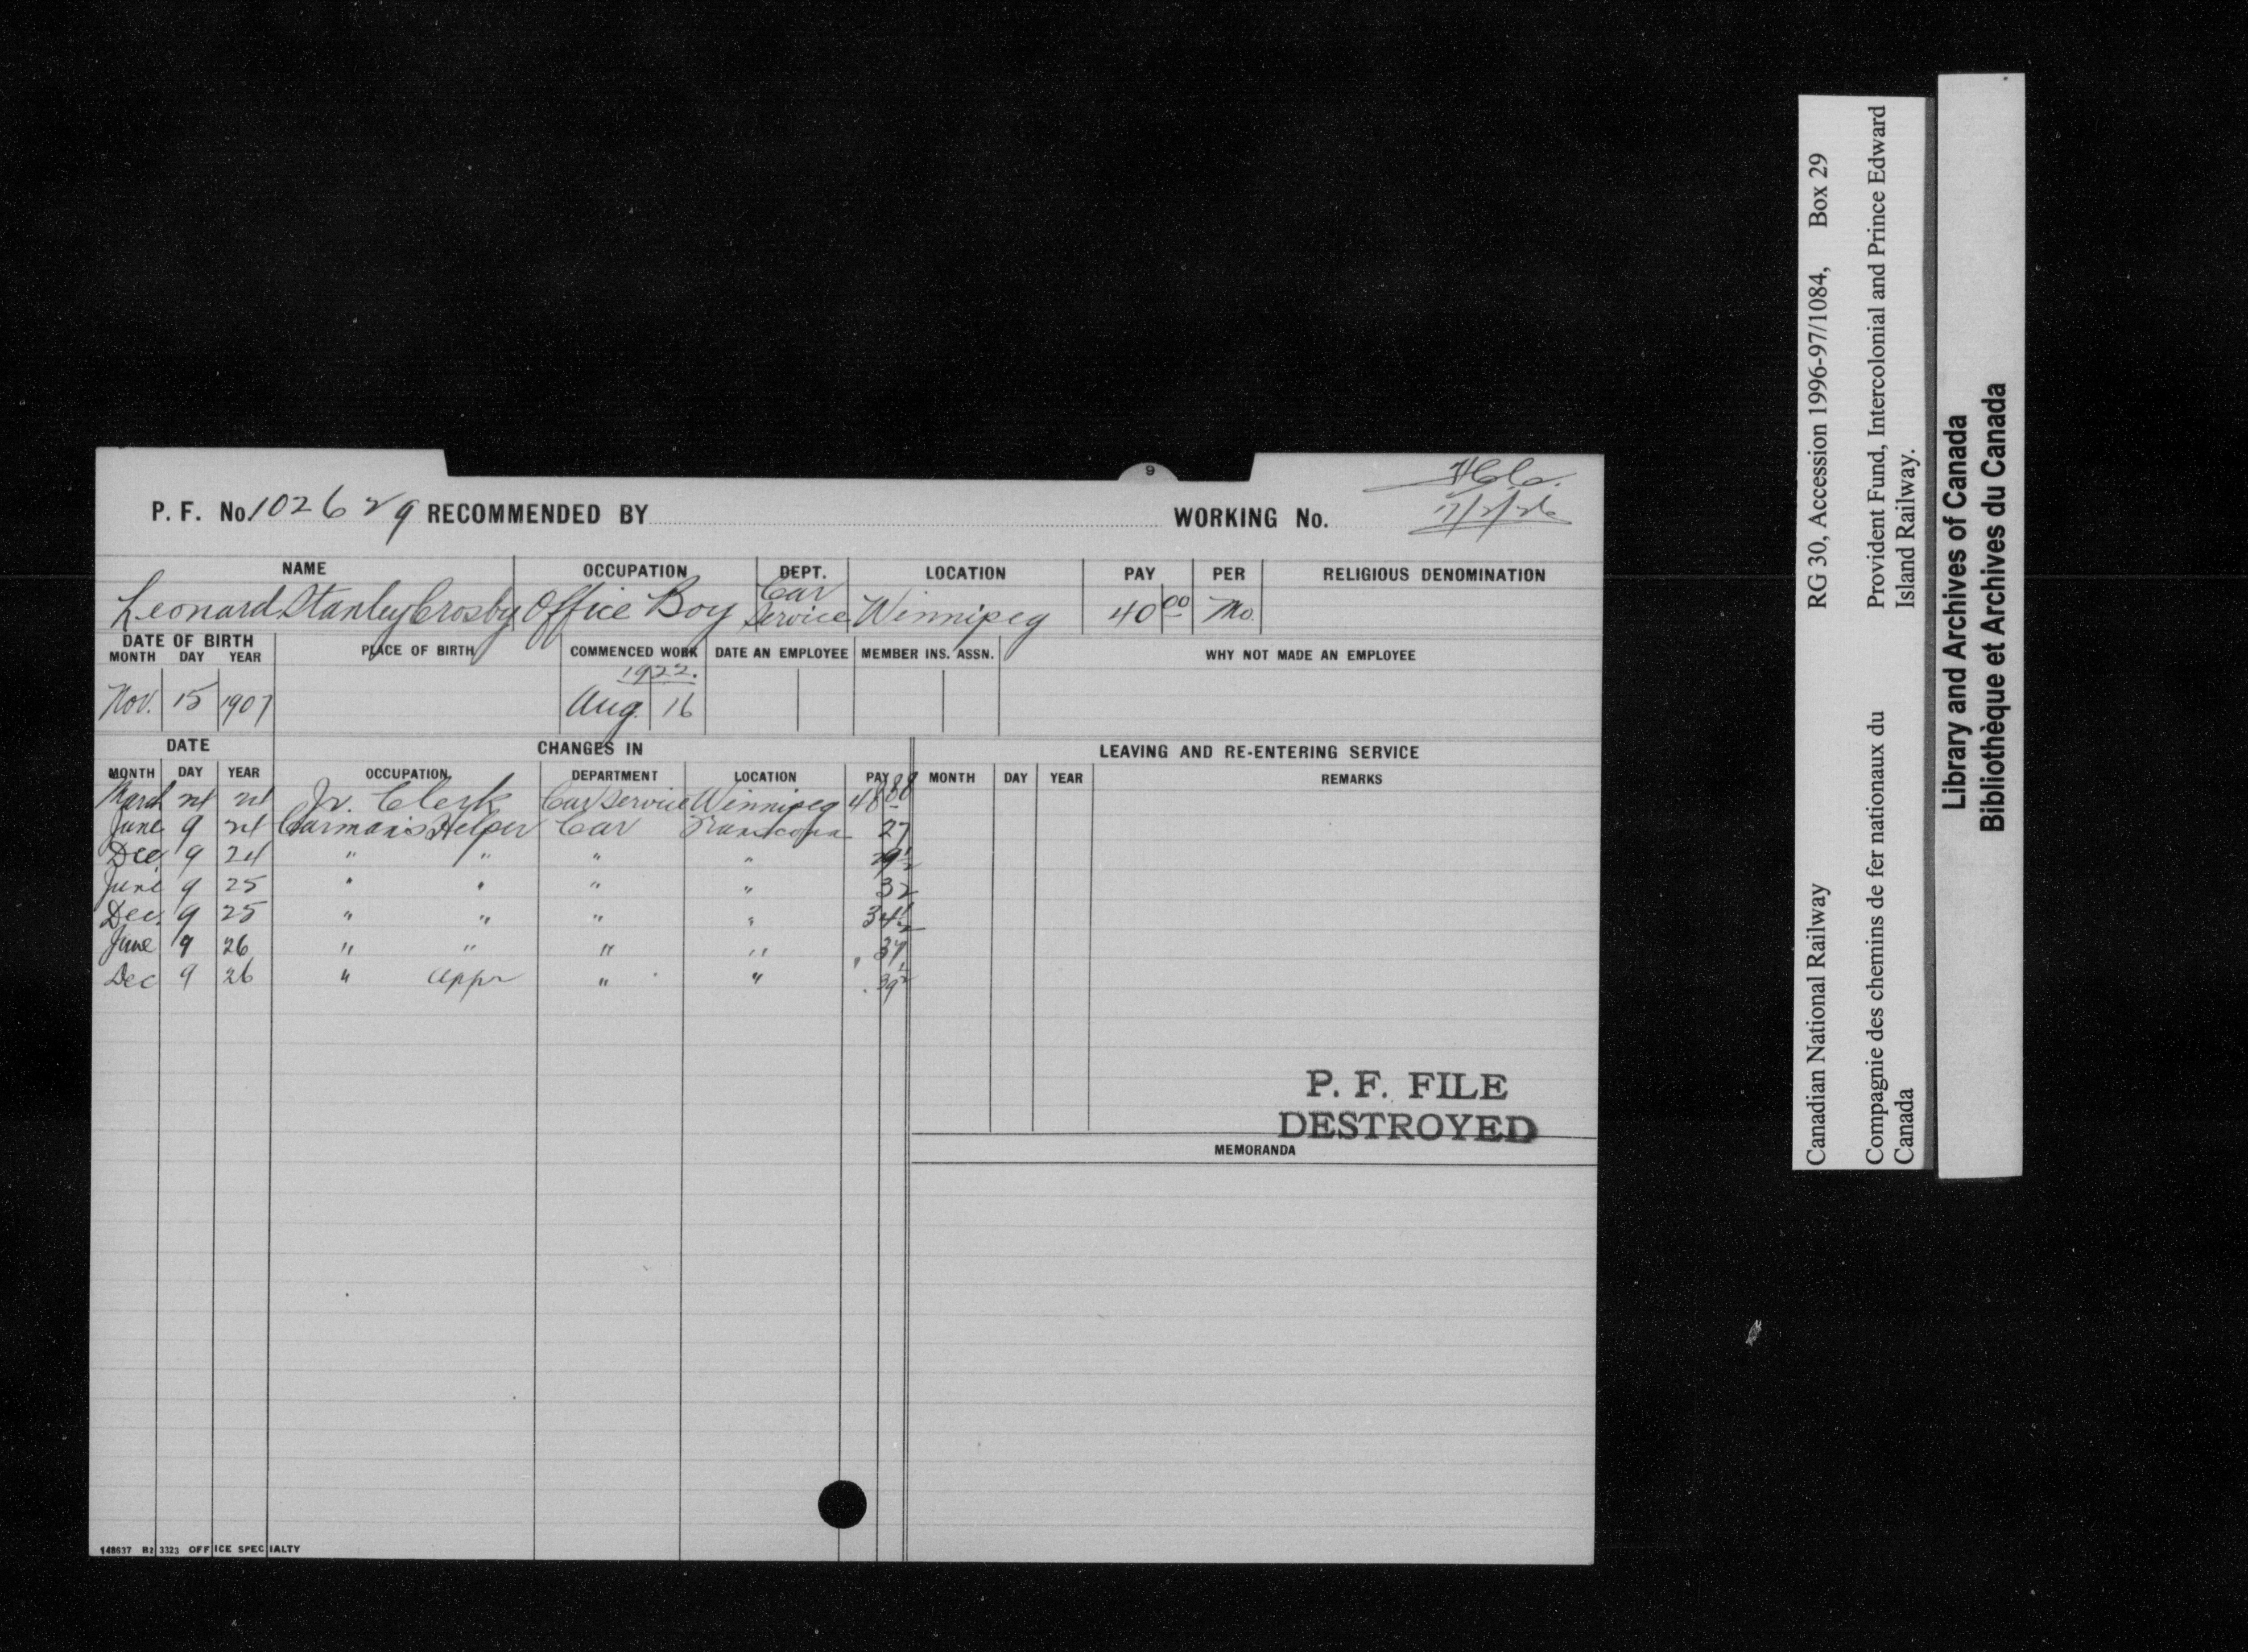 9
P. F. No. 102629 RECOMMENDED BY WORKING No.
7/2/26
NAME OCCUPATION DEPT. LOCATION PAY PER RELIGIOUS DENOMINATION
Leonard Stanley Crosby Office Boy Car Service Winnipeg 40 00 Mo.
DATE OF BIRTH PLACE OF BIRTH COMMENCED WORK DATE AN EMPLOYEE MEMBER INS. ASSN. WHY NOT MADE AN EMPLOYEE
MONTH DAY YEAR
1922.
Nov. 15 1907 Aug. 16
DATE CHANGES IN LEAVING AND RE-ENTERING SERVICE
MONTH DAY YEAR OCCUPATION DEPARTMENT LOCATION PAY MONTH DAY YEAR REMARKS
March 24 24 Jr. Clerk Car Service Winnipeg 48 88
June 9 24 Carman's Helper Car Transcona 27
Dec. 9 24 " " " " 29½
June 9 25 " " " " 32
Dec. 9 25 " " " " 34½
June 9 26 " " " " 37
Dec 9 26 " Appr " " 39½
P. F. FILE
DESTROYED
MEMORANDA
148637 R2 3323 OFFICE SPECIALTY
Canadian National Railway RG 30, Accession 1996-97/1084, Box 29
Compagnie des chemins de fer nationaux du Canada Provident Fund, Intercolonial and Prince Edward Island Railway.
Library and Archives of Canada
Bibliothèque et Archives du Canada